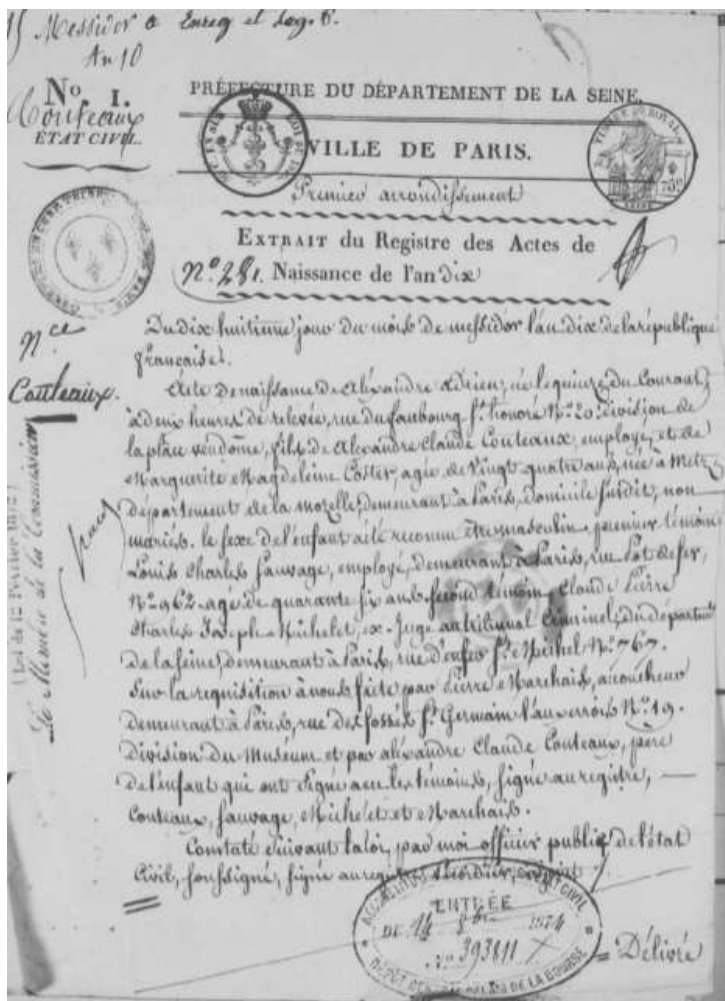 15 Messidor
An 10
No. 1.
PRÉFECTURE DU DÉPARTEMENT DE LA SEINE.
Couteaux
ÉTAT CIVIL.
VILLE DE PARIS.
Premier arrondissement
EXTRAIT du Registre des Actes de
No. 281. Naissance de l'an dix
Du dix huitieme jour du mois de messidor l'an dix de la république
française.
Nce
Couteaux.
Acte de naissance de Aléxandre Adrien, né le quinze du Courant,
à deux heures de relevée, rue du faubourg St. honoré No. 20. division de
la place vendôme, fils de Alexandre Claude Couteaux, employé, et de
Marguerite Magdeleine Coster, agée de Vingt quatre ans, née à Metz,
département de la mozelle, demeurant à Paris, domicile susdit, non
mariés. le sexe de l'enfant a été reconnu être masculin. premier témoin
Louis Charles Sauvage, employé, demeurant à Paris, rue Pot de fer,
No. 962. agé de quarante six ans. second témoin Claude Pierre
Charles Joseph Michelet, ex-Juge au tribunal Criminel, du départemt
de la seine, demeurant à Paris, rue d'enfer St. Michel No. 767.
Sur la requisition à nous faite par Pierre Marchais, accoucheur
demeurant à Paris, rue des fossés St. Germain l'auxerrois No. 19.
division du Muséum et par aléxandre Claude Couteaux, pere
de l'enfant qui ont signé avec les témoins, signé au registre, —
Couteaux, Sauvage, Michelet et Marchais.
Constaté Suivant la loi, par moi officier public de l'état
Civil, soussigné, signé au registre
(Loi du 12 Février 1872)
Le Membre de la Commission
ENTRÉE
DU 14 1874
No. 393811
DÉPÔT PALAIS DE LA BOURSE
Délivré